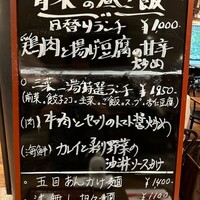 日替りランチ ¥1000
鶏肉と揚げ豆腐の甘辛
炒め
三菜一湯特選ランチ ¥1850
(前菜、餃子2コ、主菜、ご飯、スープ、杏仁豆腐)
(肉) 牛肉とセロリのトマト醤炒め
(海鮮) カレイと彩り野菜の
油淋ソースがけ
五目あんかけ麺 ¥1400
¥1100